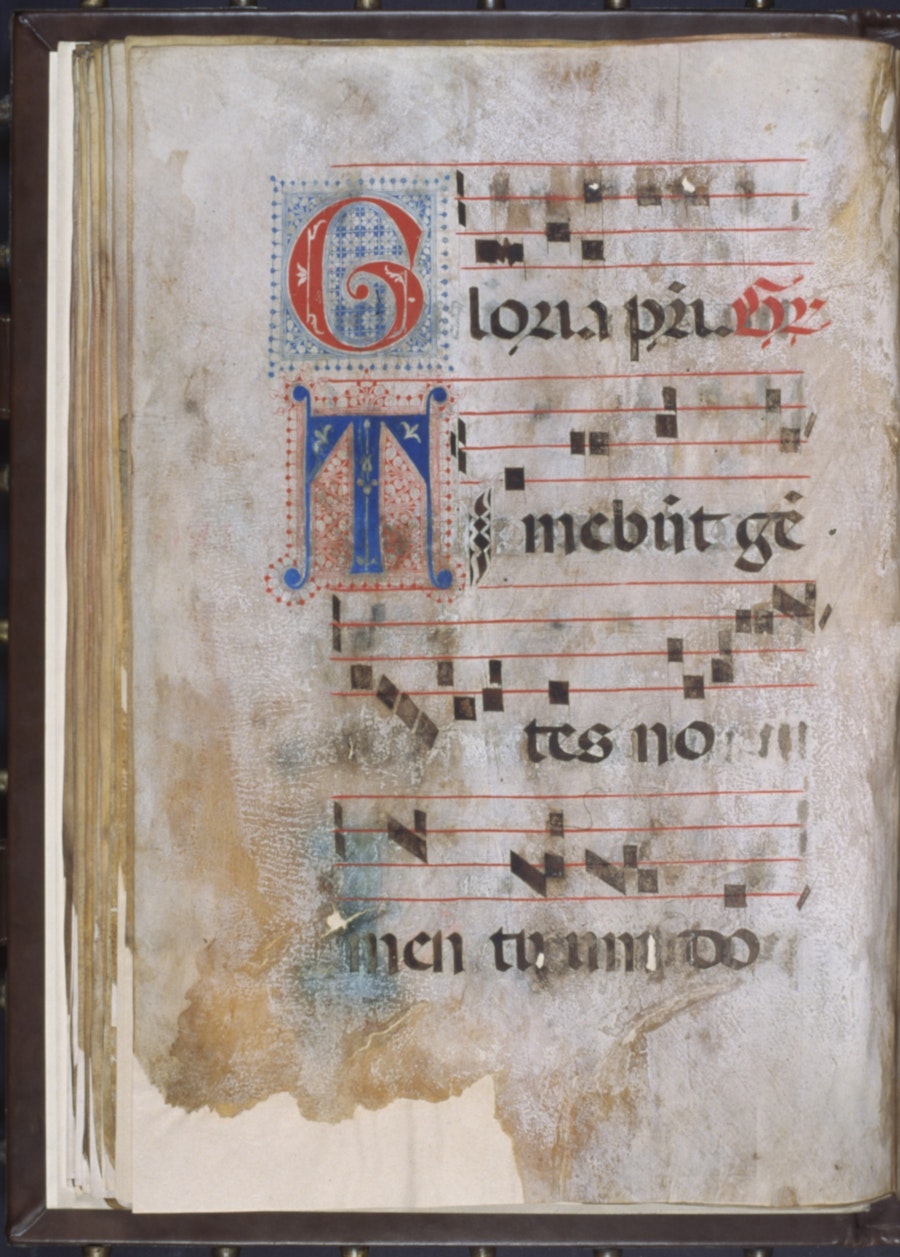 Gloria pr̄i. Gr̄
Timebūt gē
tes no
men tuum do